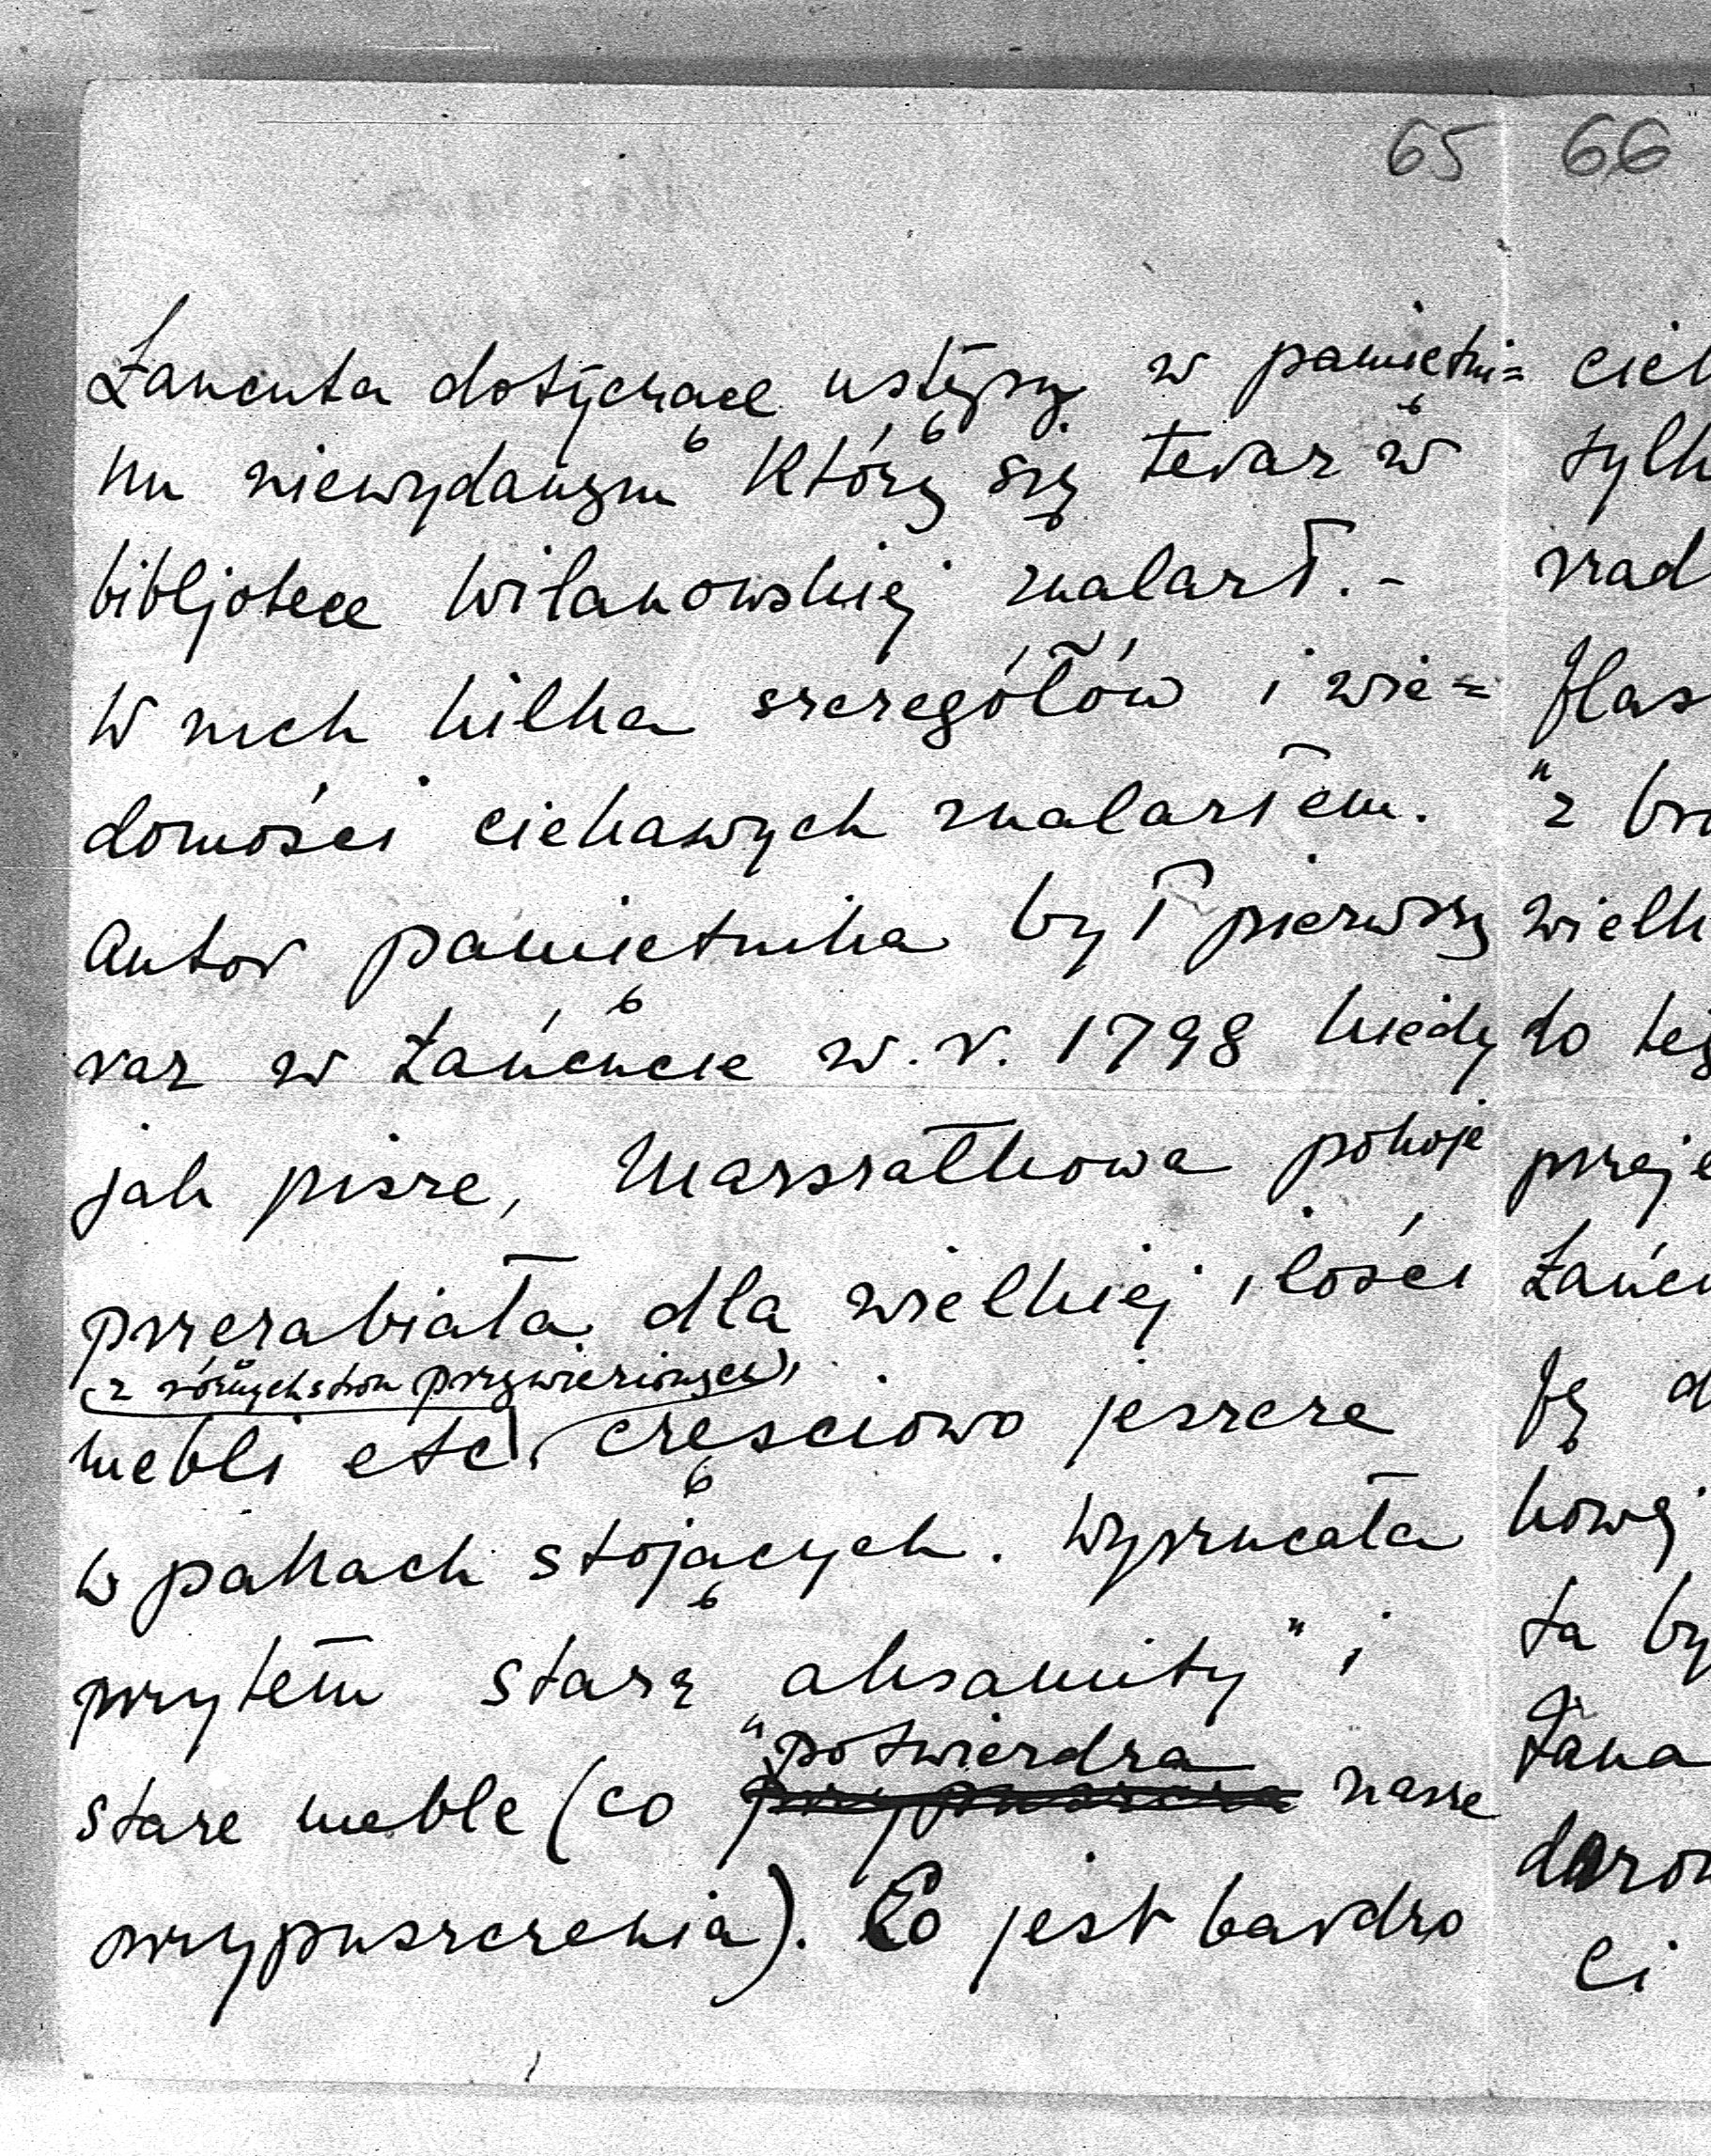 65 66
Łancuta dotyczące ustępy w pamiętni=
ku niewydanym który się teraz w
bibljotece Wilanowskiej znalazł.-
W nich kilka szczegółów i wia=
domości ciekawych znalazłem.
Autor pamietnika był pierwszy
raz w Łańcucie w.r. 1798 kiedy
jak pisze, Marszałkowa pokoje
przerabiała dla wielkiej ilości
(z różnych stron przywiezionych),
mebli etc, częsciowo jeszcze
w pakach stojących. Wyrzucała
przytem stare aksamity" i
stare meble (co "potwierdza
przypuszcza nasze
przypuszczenia). Co jest bardzo
ciek
tylk
rad
flas
"z bro
wielk
do teg
przeje
Łańcu
Ję d
kowej
ta by
Łana
darow
Ci